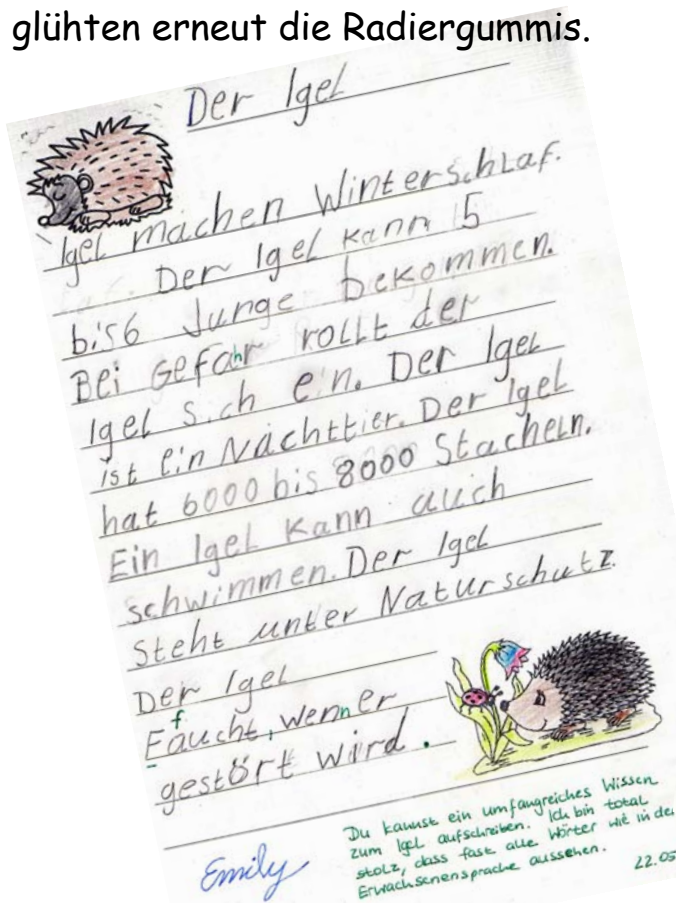 glühten erneut die Radiergummis.
Der Igel
Igel machen Winterschlaf.
Der Igel kann 5
bis 6 Junge bekommen.
Bei Gefahr rollt der
Igel sich ein. Der Igel
ist ein Nachttier. Der Igel
hat 6000 bis 8000 Stacheln.
Ein Igel kann auch
schwimmen. Der Igel
steht unter Naturschutz.
Der Igel
Faucht, wenn er
f
gestört wird.
Emily
Du kannst ein umfangreiches Wissen
zum Igel aufschreiben. Ich bin total
stolz, dass fast alle Wörter wie in de
Erwachsenensprache aussehen.
22.05